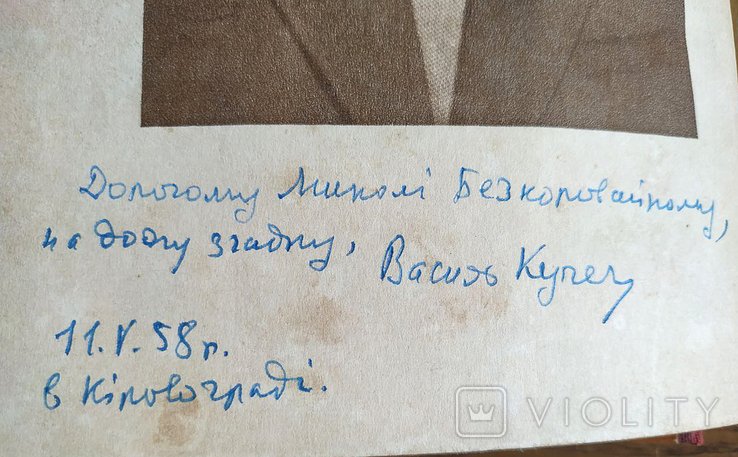 Дорогому Миколі Безкоровайному,
на довгу згадку, Василь Кучер
11.V.58 р.
в Кіровограді.
VIOLITY